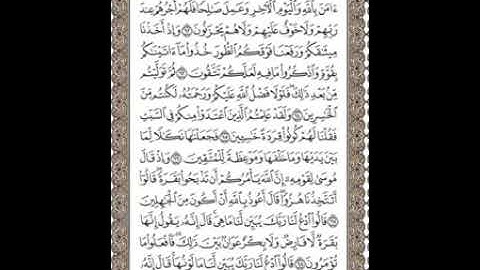 ءَامَنَ بِٱللَّهِ وَٱلْيَوْمِ ٱلْءَاخِرِ وَعَمِلَ صَٰلِحًا فَلَهُمْ أَجْرُهُمْ عِندَ
رَبِّهِمْ وَلَا خَوْفٌ عَلَيْهِمْ وَلَا هُمْ يَحْزَنُونَ ٦٢ وَإِذْ أَخَذْنَا
مِيثَٰقَكُمْ وَرَفَعْنَا فَوْقَكُمُ ٱلطُّورَ خُذُوا۟ مَآ ءَاتَيْنَٰكُم
بِقُوَّةٍ وَٱذْكُرُوا۟ مَا فِيهِ لَعَلَّكُمْ تَتَّقُونَ ٦٣ ثُمَّ تَوَلَّيْتُم
مِّنۢ بَعْدِ ذَٰلِكَ فَلَوْلَا فَضْلُ ٱللَّهِ عَلَيْكُمْ وَرَحْمَتُهُۥ لَكُنتُم مِّنَ
ٱلْخَٰسِرِينَ ٦٤ وَلَقَدْ عَلِمْتُمُ ٱلَّذِينَ ٱعْتَدَوْا۟ مِنكُمْ فِى ٱلسَّبْتِ
فَقُلْنَا لَهُمْ كُونُوا۟ قِرَدَةً خَٰسِـِٔينَ ٦٥ فَجَعَلْنَٰهَا نَكَٰلًا لِّمَا
بَيْنَ يَدَيْهَا وَمَا خَلْفَهَا وَمَوْعِظَةً لِّلْمُتَّقِينَ ٦٦ وَإِذْ قَالَ
مُوسَىٰ لِقَوْمِهِۦٓ إِنَّ ٱللَّهَ يَأْمُرُكُمْ أَن تَذْبَحُوا۟ بَقَرَةً قَالُوٓا۟
أَتَتَّخِذُنَا هُزُوًا قَالَ أَعُوذُ بِٱللَّهِ أَنْ أَكُونَ مِنَ ٱلْجَٰهِلِينَ
٦٧ قَالُوا۟ ٱدْعُ لَنَا رَبَّكَ يُبَيِّن لَّنَا مَا هِىَ قَالَ إِنَّهُۥ يَقُولُ إِنَّهَا
بَقَرَةٌ لَّا فَارِضٌ وَلَا بِكْرٌ عَوَانٌۢ بَيْنَ ذَٰلِكَ فَٱفْعَلُوا۟ مَا
تُؤْمَرُونَ ٦٨ قَالُوا۟ ٱدْعُ لَنَا رَبَّكَ يُبَيِّن لَّنَا مَا لَوْنُهَا قَالَ إِنَّهُۥ